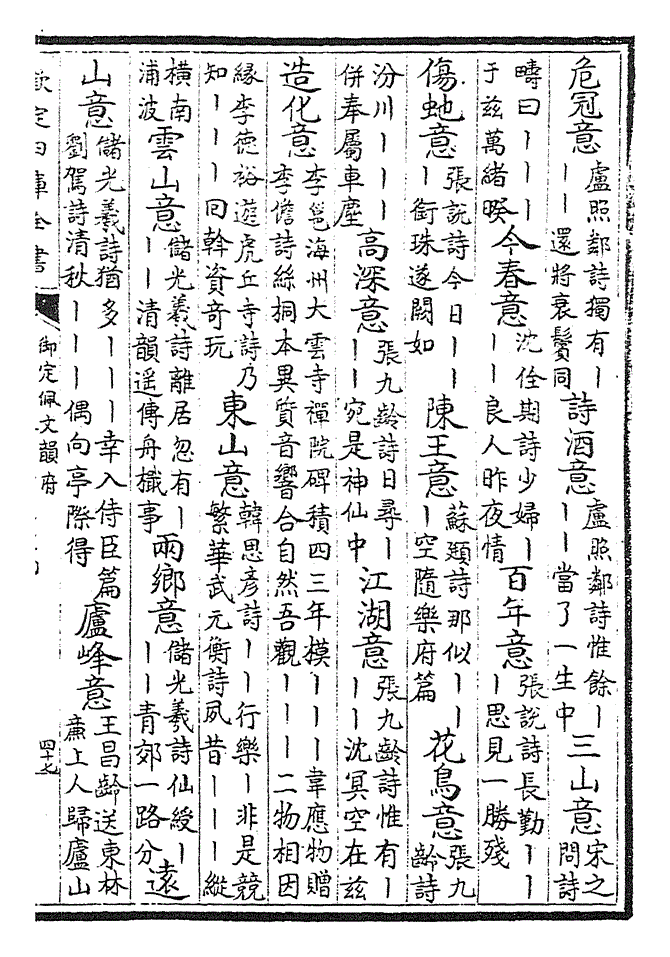 危冠意盧照鄰詩獨有丨丨丨還將衰鬢同詩酒意盧照鄰詩惟餘丨丨丨當了一生中三山意宋之問詩
疇曰丨丨丨于兹萬緒暌今春意沈佺期詩少婦丨丨丨良人昨夜情百年意張說詩長勤丨丨丨思見一勝殘
傷虵意張說詩今日丨丨丨銜珠遂闕如陳王意蘇頲詩那似丨丨丨空隨樂府篇花鳥意張九齡詩
汾川丨丨丨併奉屬車塵高深意張九齡詩日尋丨丨丨宛是神仙中江湖意張九齡詩惟有丨丨丨沈冥空在兹
造化意李邕海州大雲寺禪院碑積四三年模丨丨丨韋應物贈李儋詩絲桐本異質音響合自然吾觀丨丨丨二物相因
緣李德裕遊虎丘寺詩乃知丨丨丨回斡資奇玩東山意韓思彦詩丨丨行樂丨非是競繁華武元衡詩夙昔丨丨丨縱
橫南浦波雲山意儲光羲詩離居忽有丨丨丨清韻遥傳舟檝事兩鄉意儲光羲詩仙綬丨丨丨青郊一路分遠
山意儲光羲詩猶多丨丨丨幸入侍臣篇劉駕詩清秋丨丨丨偶向亭際得廬峰意王昌齡送東林亷上人歸廬山
欽定四庫全書
御定佩文韻府
四十七